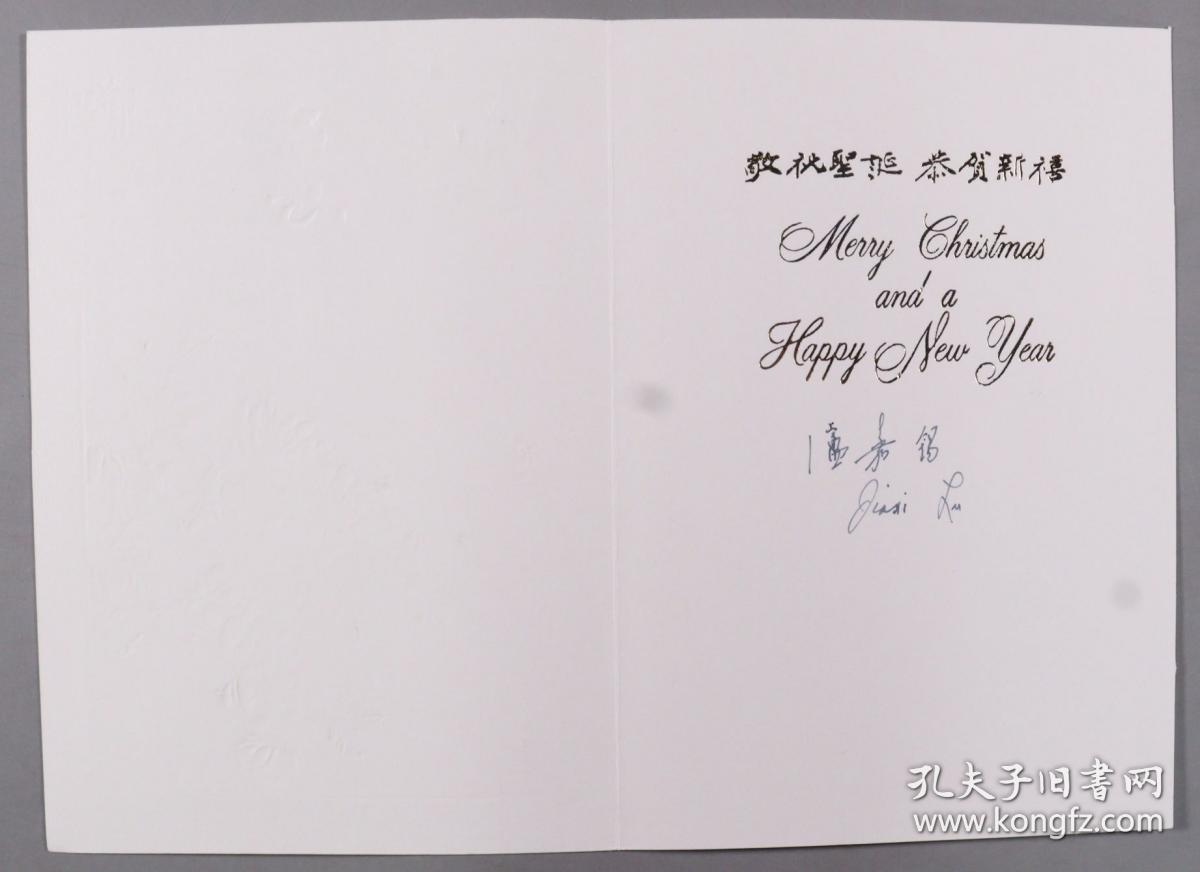 敬祝聖誕 恭賀新禧
Merry Christmas
and a
Happy New Year
盧嘉錫
Jiaxi Lu
孔夫子旧书网
www.kongfz.com